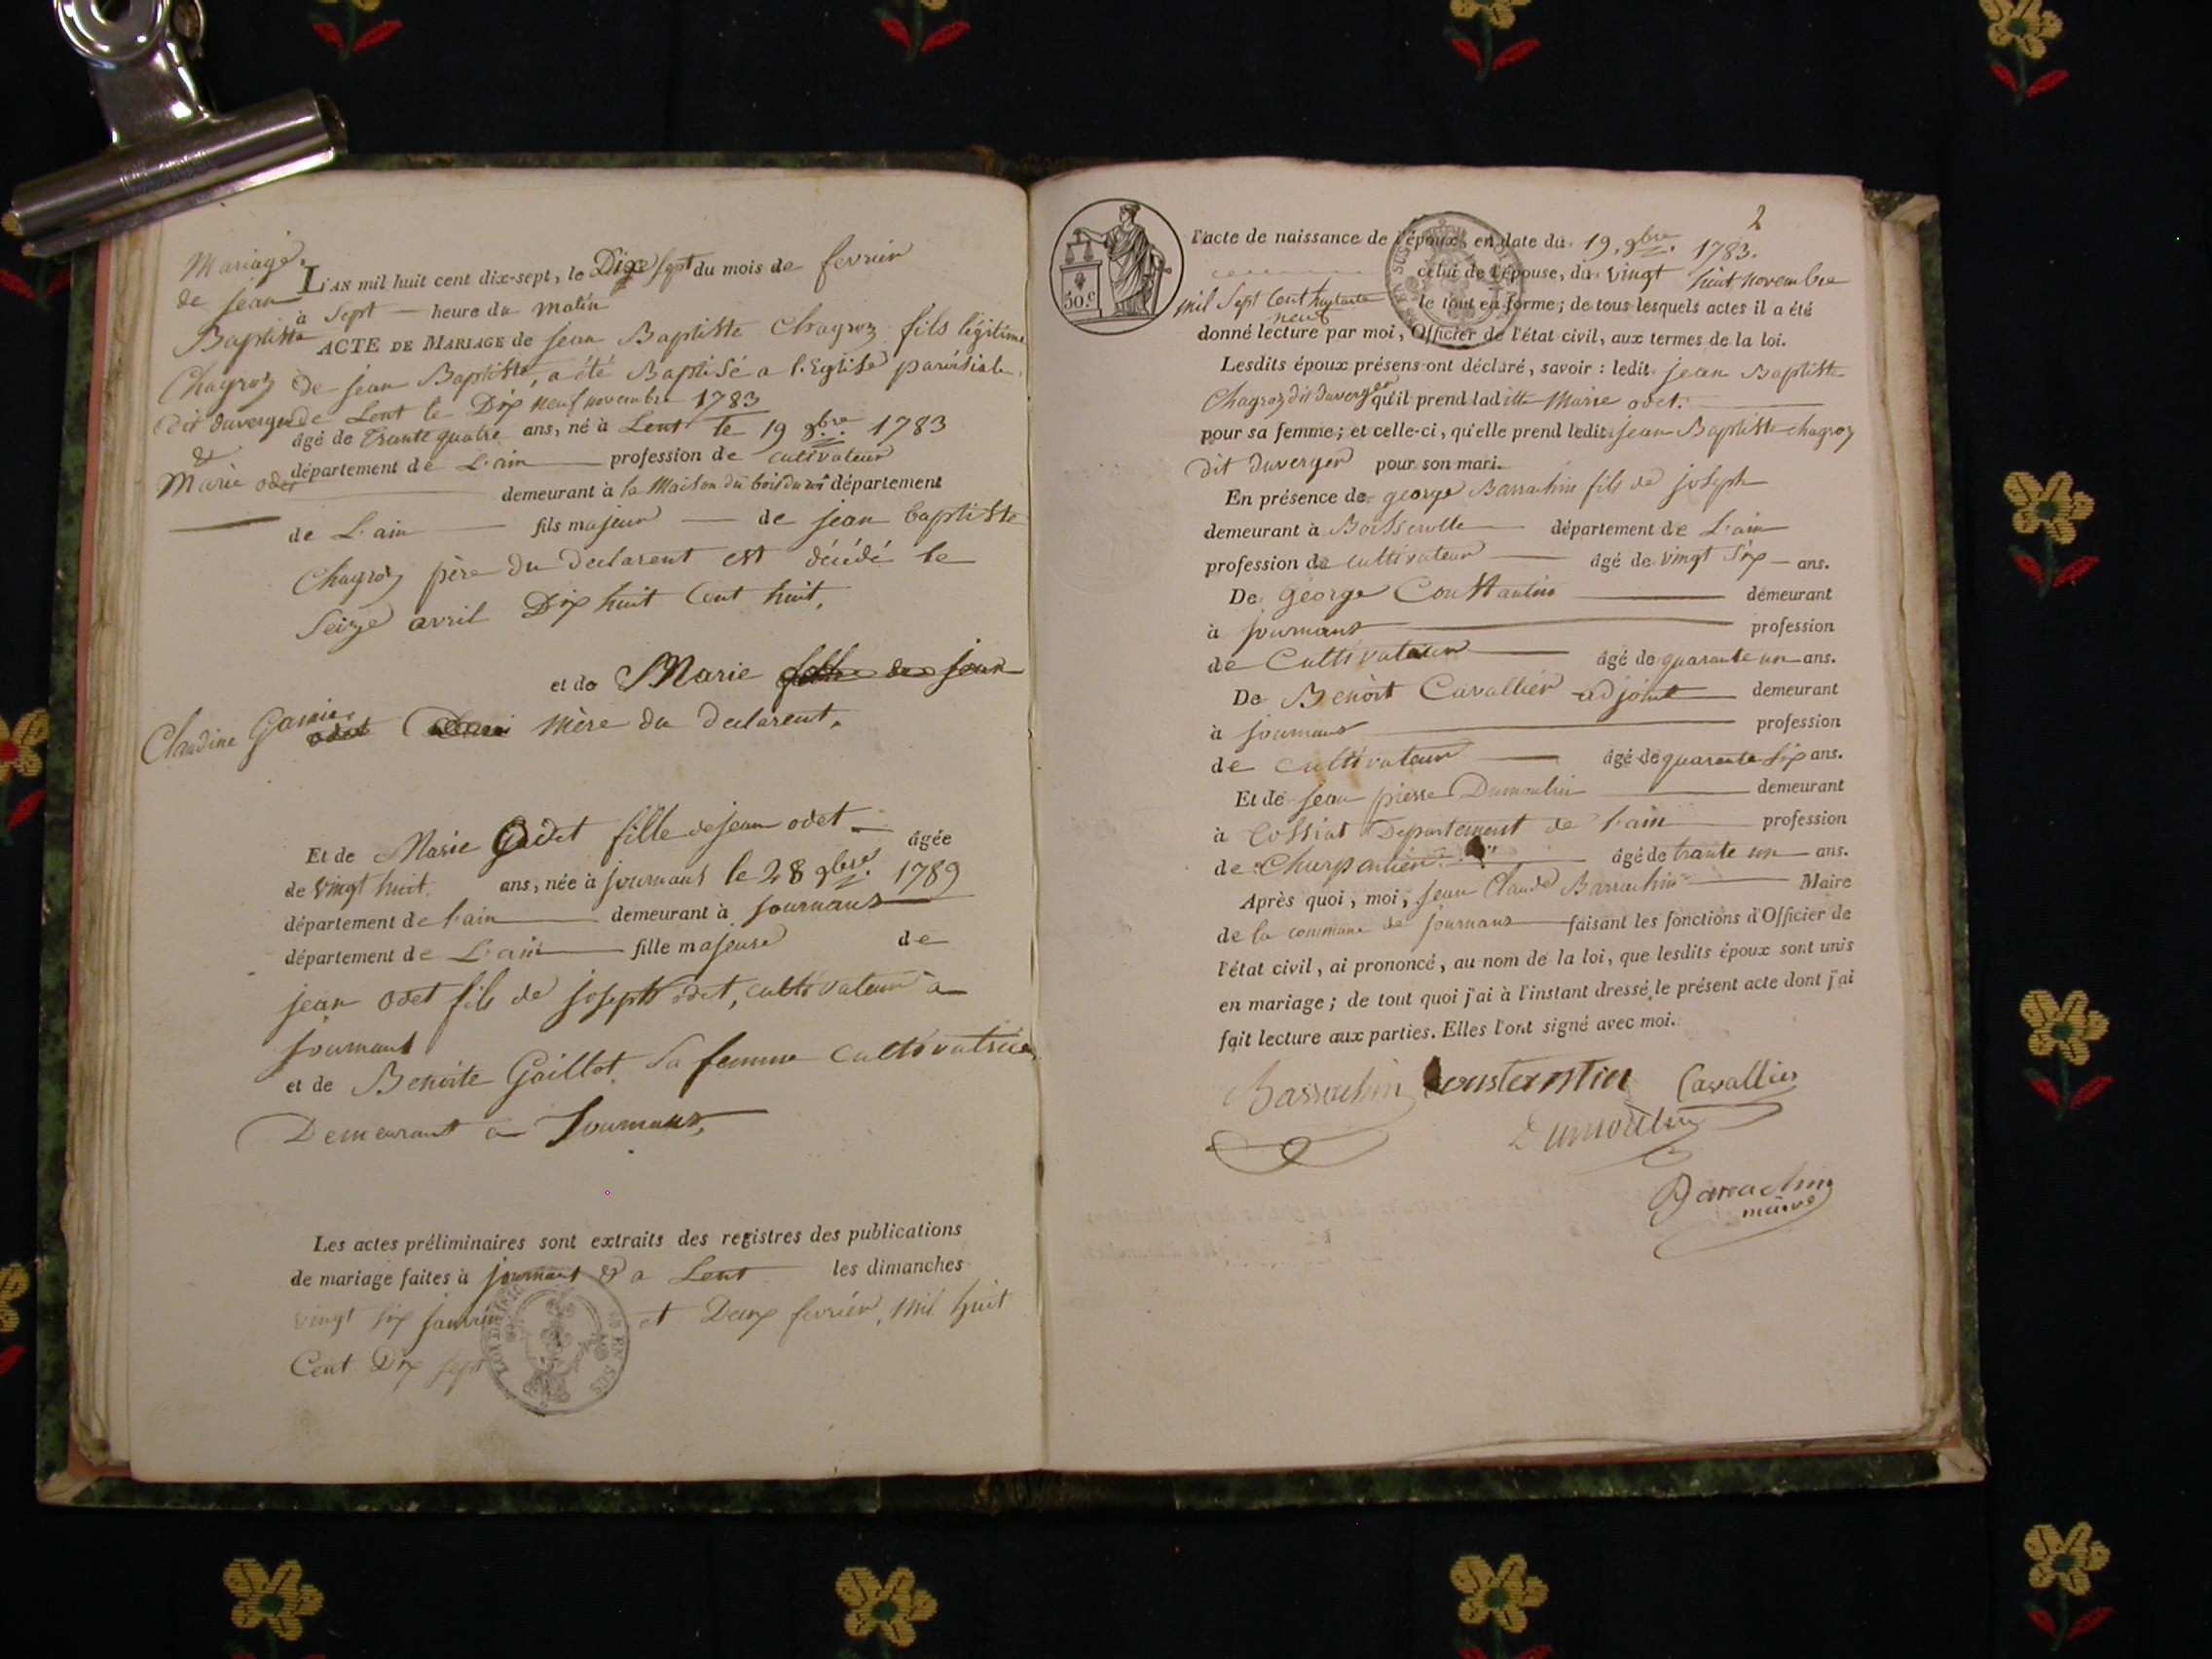 Mariage
de jean
Baptiste
Chagroz
dit duverger
&
Marie odet
L'AN mil huit cent dix-sept, le Dixe sept du mois de fevrier
à sept heure du matin
ACTE DE MARIAGE de jean Baptiste Chagroz fils légitime
de jean Baptiste, a été Baptisé a l'Eglise paroisiale
de Lent le Dix neuf novembre 1783
âgé de trante quatre ans, né à Lent le 19 9bre 1783
département de L'ain profession de cultivateur
demeurant à la Maison du bois du roi département
de L'ain fils majeur de jean baptiste
Chagroz père du declarent est décédé le
Seize avril Dix huit Cent huit,
et de Marie fille de jean
Claudine Garnier odet mère du declarent.
Et de Marie Odet fille de jean odet âgée
de vingt huit ans, née à journans le 28 9bre 1789
département de l'ain demeurant à journans
département de L'ain fille majeure de
jean odet fils de joseph odet, cultivateur a
journans
et de Benoite Gaillot sa femme cultivatrice
Demeurant a Journans,
Les actes préliminaires sont extraits des registres des publications
de mariage faites à journans & a Lent les dimanches
vingt six janvier et Deux fevrier, mil huit
Cent Dix sept
2
50.c
EN SUS
l'acte de naissance de l'époux, en date du 19. 9bre 1783.
celui de l'épouse, du vingt huit novembre
mil Sept Cent huitante neuf le tout en forme; de tous lesquels actes il a été
donné lecture par moi, Officier de l'état civil, aux termes de la loi.
Lesdits époux présens ont déclaré, savoir : ledit jean Baptiste
Chagroz dit duverger qu'il prend ladite Marie odet.
pour sa femme; et celle-ci, qu'elle prend ledit jean Baptiste chagroz
dit duverger pour son mari.
En présence de george Barrachin fils de joseph
demeurant à Boisserolle département de L'ain
profession de cultivateur âgé de vingt six ans.
De George Constantin demeurant
à journans profession
de Cultivateur âgé de quarante un ans.
De Benoit Cavallier adjoint demeurant
à journans profession
de cultivateur âgé de quarante six ans.
Et de jean pierre Dumoulin demeurant
à Cossiat Departement de l'ain profession
de Charpentier âgé de trante un ans.
Après quoi, moi, jean Claude Barrachin Maire
de la commune de journans faisant les fonctions d'Officier de
l'état civil, ai prononcé, au nom de la loi, que lesdits époux sont unis
en mariage; de tout quoi j'ai à l'instant dressé le présent acte dont j'ai
fait lecture aux parties. Elles l'ont signé avec moi.
Barrachin Constentin Cavallier
Dumoulin
Barrachin
maire